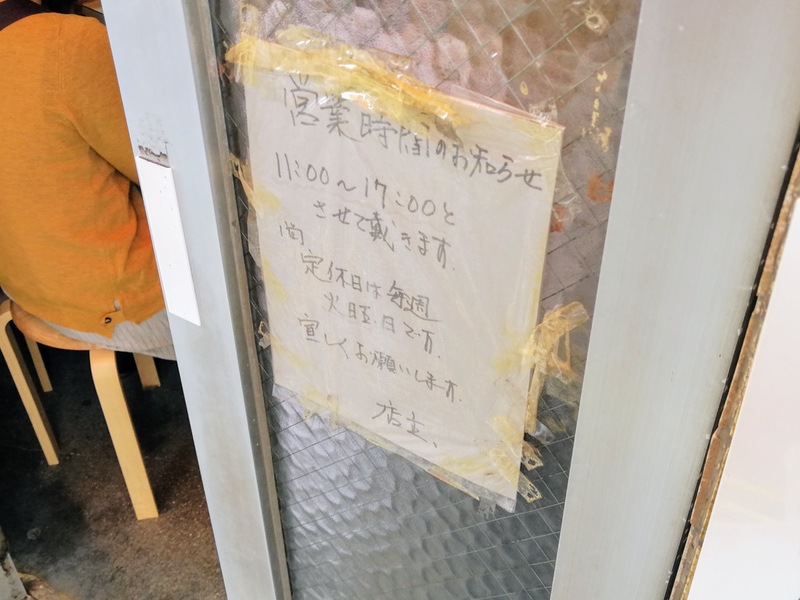 営業時間のお知らせ
11:00〜17:00と
させて戴きます.
尚
定休日は毎週
火曜日です.
宜しくお願いします.
店主、